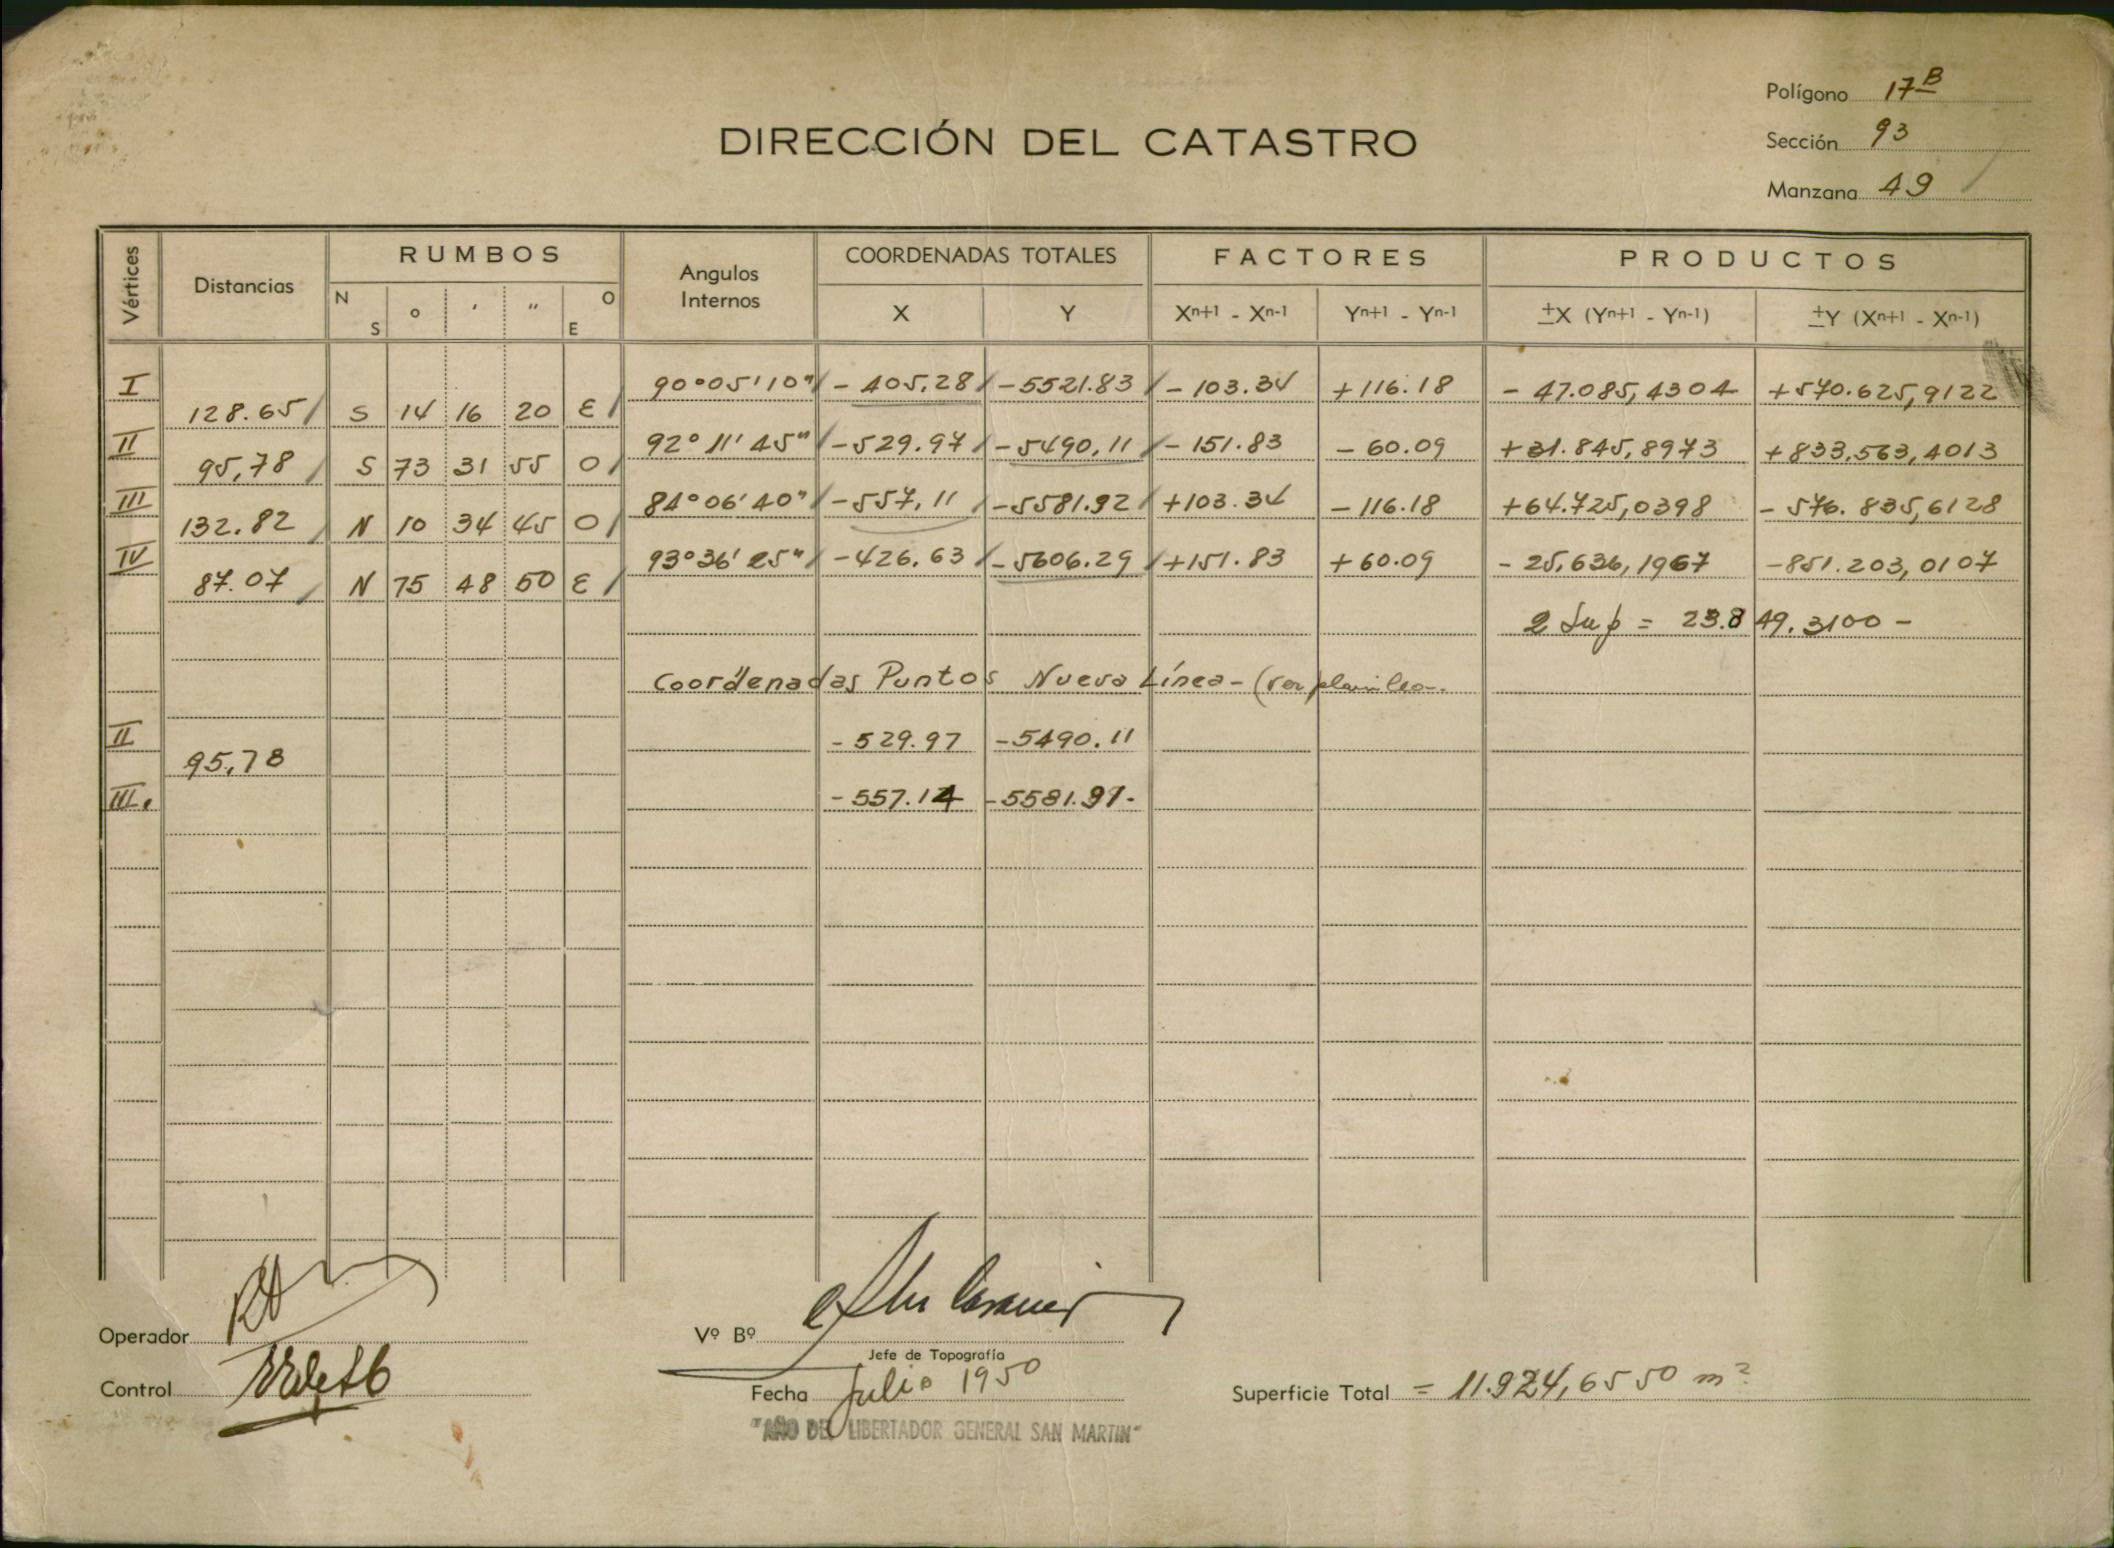 Polígono 17B
DIRECCIÓN DEL CATASTRO
Sección 93
Manzana 49
Vértices Distancias RUMBOS Angulos Internos COORDENADAS TOTALES FACTORES PRODUCTOS
N S ° ' " O E X Y Xn+1 - Xn-1 Yn+1 - Yn-1 ±X (Yn+1 - Yn-1) ±Y (Xn+1 - Xn-1)
I 90°05'10" - 405,28 -5521.83 - 103.34 +116.18 - 47.085,4304 +570.625,9122
128.65 S 14 16 20 E
II 92° 11' 45" -529.97 -5490,11 - 151.83 - 60.09 +31.845,8973 +833,563,4013
95,78 S 73 31 55 O
III 84°06'40" -557,11 -5581.92 +103.34 - 116.18 +64.725,0398 - 576.835,6128
132.82 N 10 34 45 O
IV 93°36' 25" -426,63 -5606.29 +151.83 +60.09 - 25,636,1967 -851.203,0107
87.07 N 75 48 50 E
2 Sup = 23.849.3100 -
Coordenadas Puntos Nueva Línea - (ver
II - 529.97 -5490.11
95,78
III. - 557.14 -5581.91-
Operador
Vº Bº
Jefe de Topografía
Control
Fecha Julio 1950
Superficie Total = 11.924,6550 m2
"AÑO DEL LIBERTADOR GENERAL SAN MARTIN"